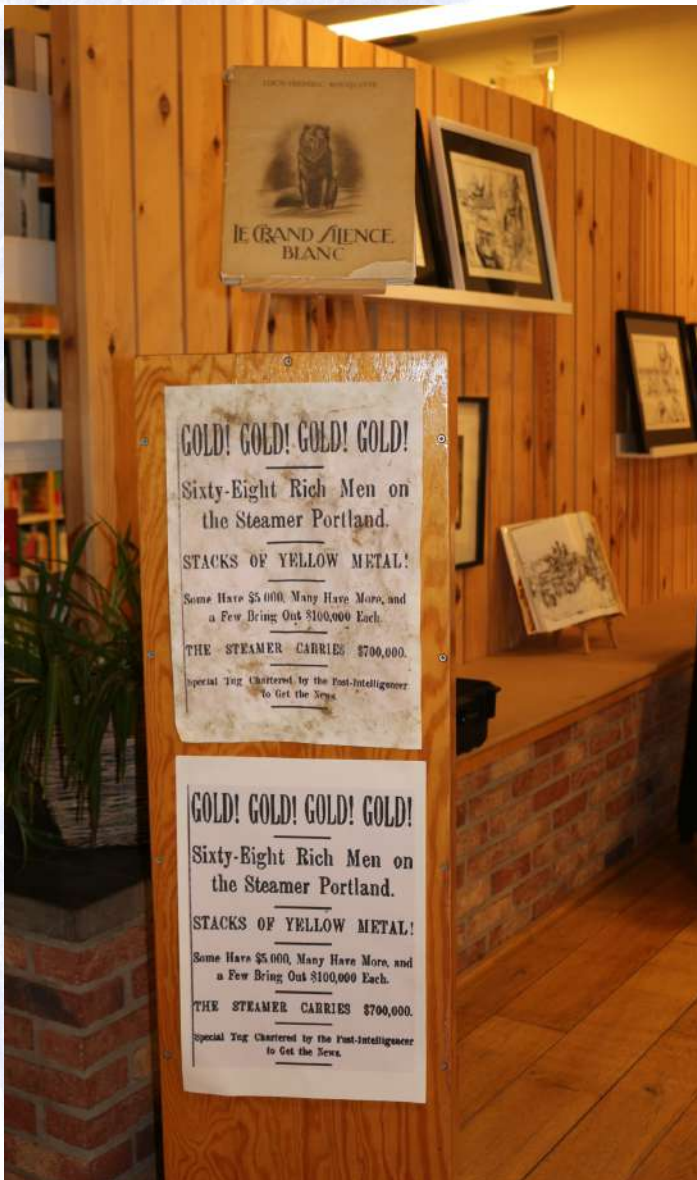 LOUIS-FRÉDÉRIC ROUQUETTE
LE GRAND SILENCE
BLANC
GOLD! GOLD! GOLD! GOLD!
Sixty-Eight Rich Men on
the Steamer Portland.
STACKS OF YELLOW METAL!
Some Have $5,000, Many Have More, and
a Few Bring Out $100,000 Each.
THE STEAMER CARRIES $700,000.
Special Tug Chartered by the Post-Intelligencer
to Get the News.
GOLD! GOLD! GOLD! GOLD!
Sixty-Eight Rich Men on
the Steamer Portland.
STACKS OF YELLOW METAL!
Some Have $5,000, Many Have More, and
a Few Bring Out $100,000 Each.
THE STEAMER CARRIES $700,000.
Special Tug Chartered by the Post-Intelligencer
to Get the News.